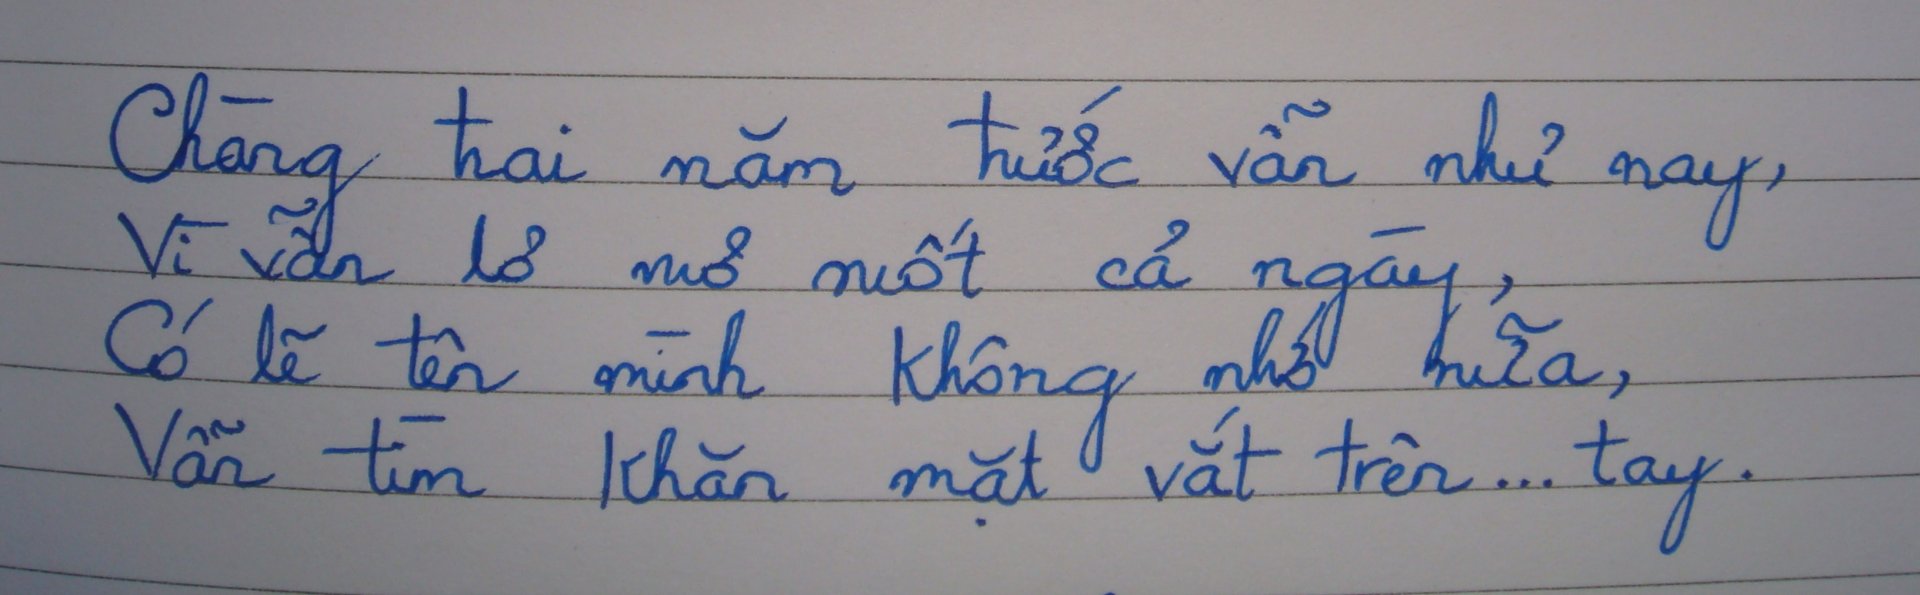 Chàng trai năm trước vẫn như nay,
Vì vẫn lơ mơ suốt cả ngày,
Có lẽ tên mình không nhớ nữa,
Vẫn tìm khăn mặt vắt trên... tay.